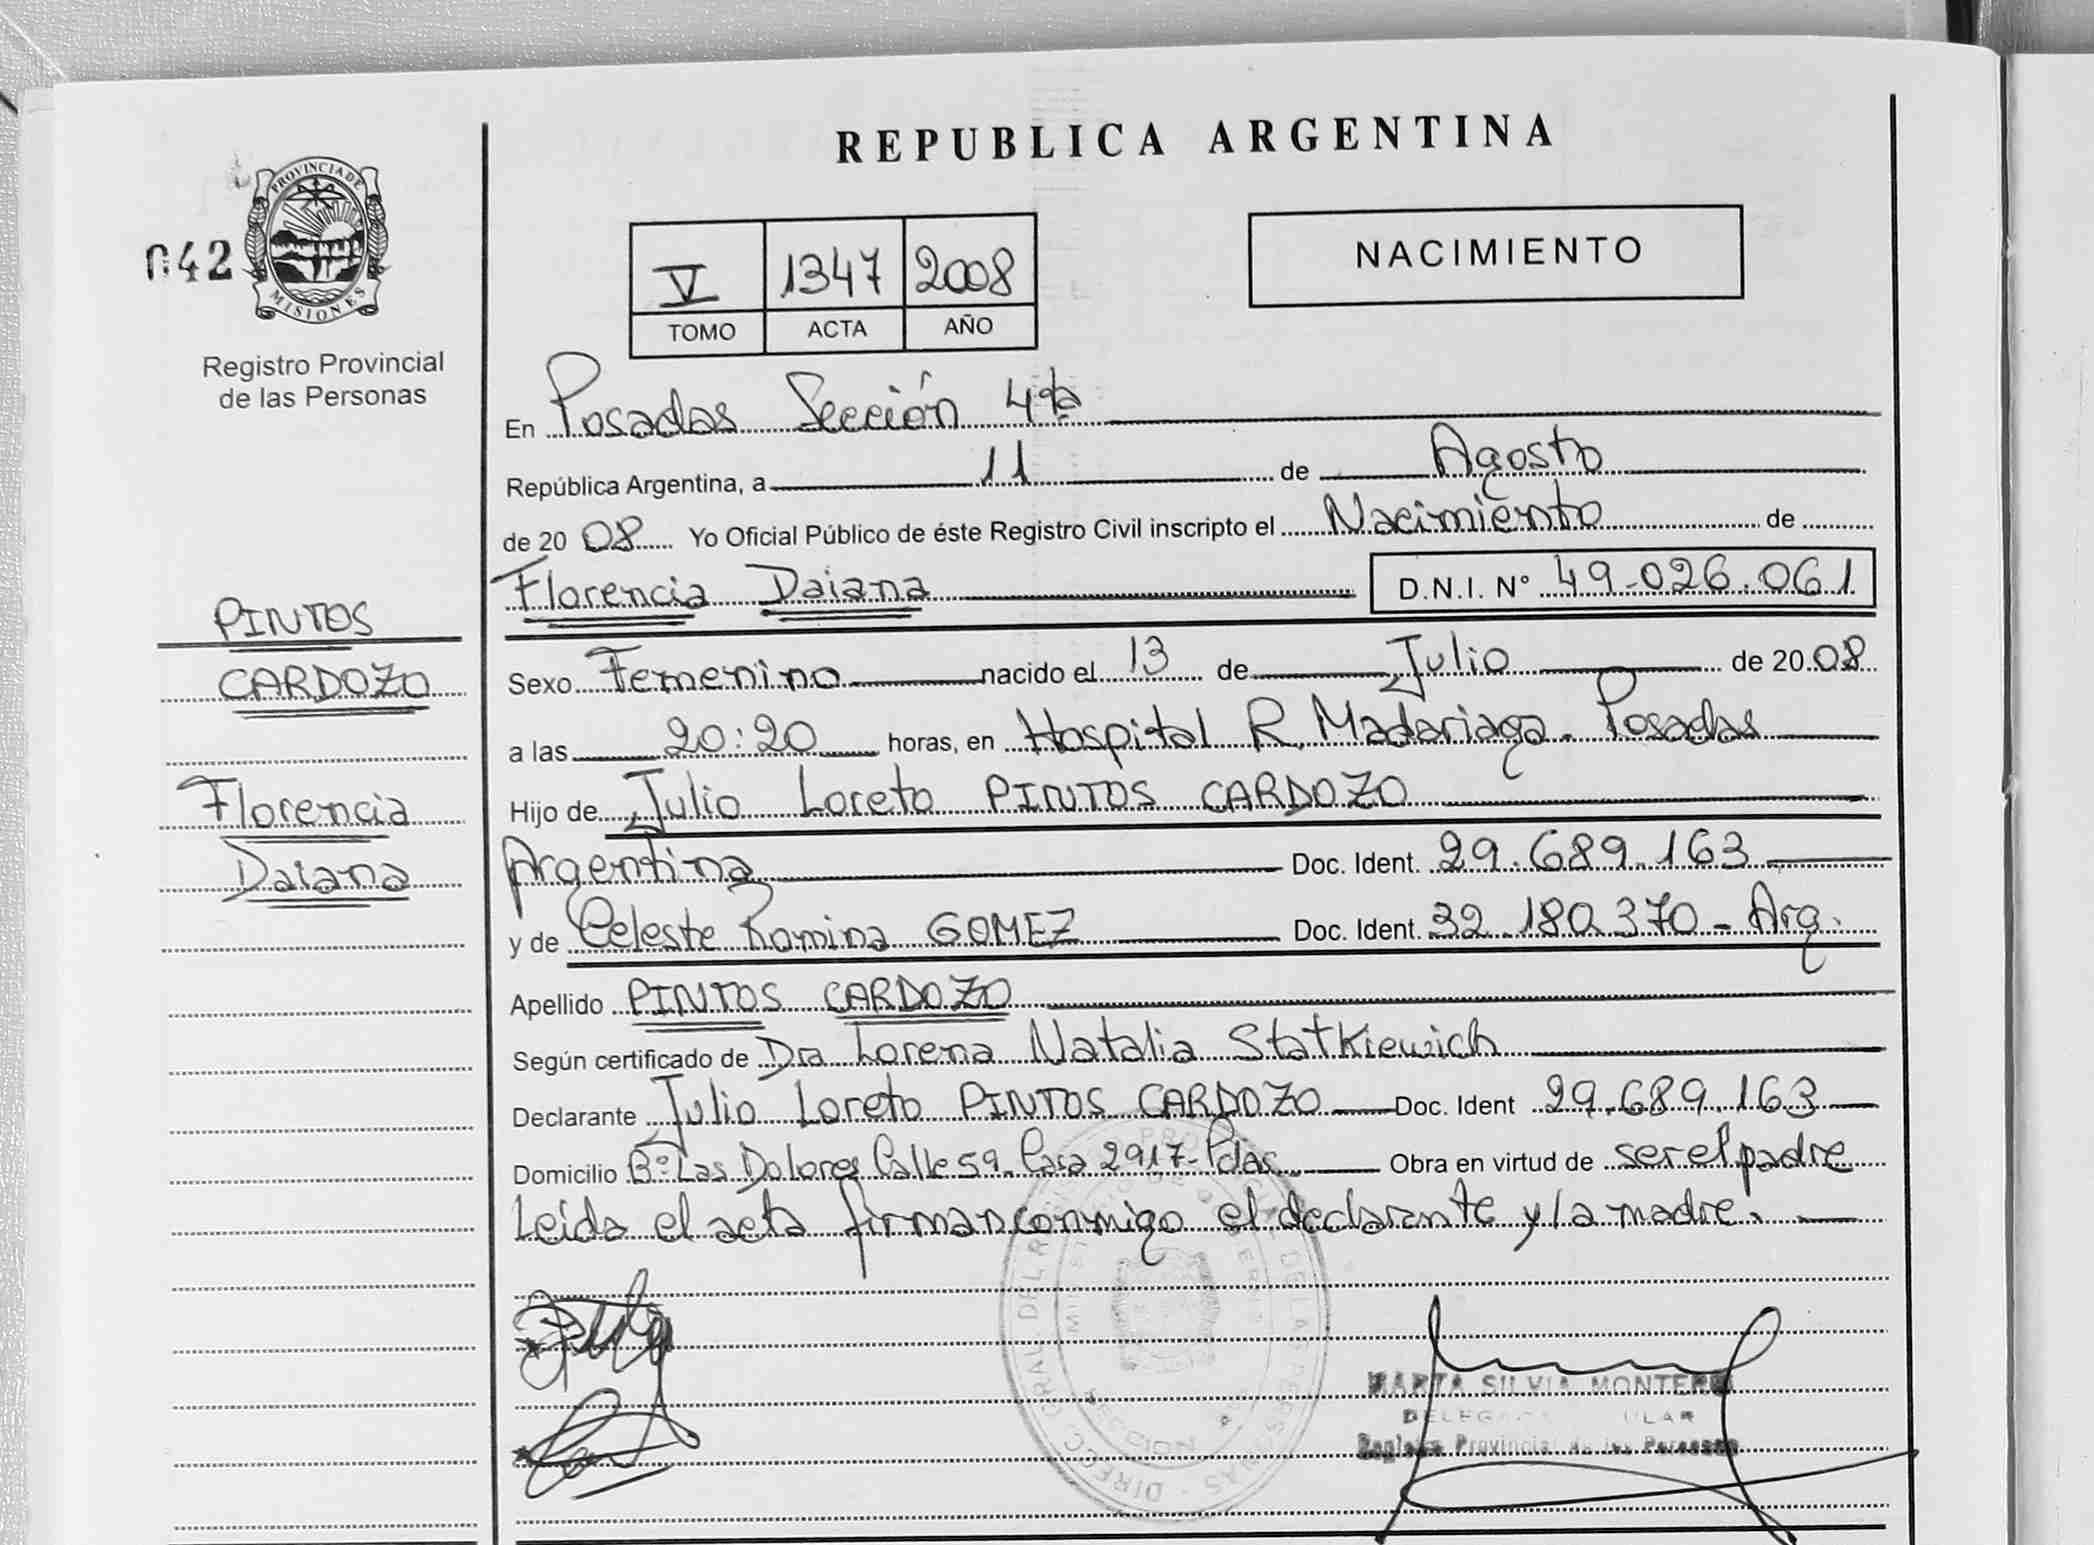 REPUBLICA ARGENTINA
PROVINCIA DE
MISIONES
042
Registro Provincial
de las Personas
V 1347 2008
TOMO ACTA AÑO
NACIMIENTO
En Posadas Sección 4ta
República Argentina, a 11 de Agosto
de 2008 Yo Oficial Público de éste Registro Civil inscripto el Nacimiento de
Florencia Daiana D.N.I. N° 49.026.061
PINTOS
CARDOZO
Florencia
Daiana
Sexo Femenino nacido el 13 de Julio de 2008
a las 20:20 horas, en Hospital R. Madariaga. Posadas
Hijo de Julio Loreto PINTOS CARDOZO
Argentina Doc. Ident. 29.689.163
y de Celeste Romina GOMEZ Doc. Ident. 32.180.370 - Arg.
Apellido PINTOS CARDOZO
Según certificado de Dra Lorena Natalia Statkiewich
Declarante Julio Loreto PINTOS CARDOZO Doc. Ident 29.689.163
Domicilio B° Las Dolores Calle 59 Casa 2917- Pdas. Obra en virtud de ser el padre
Leída el acta firman conmigo el declarante y la madre.
MARTA SILVIA MONTERO
Registro Provincial de las Personas